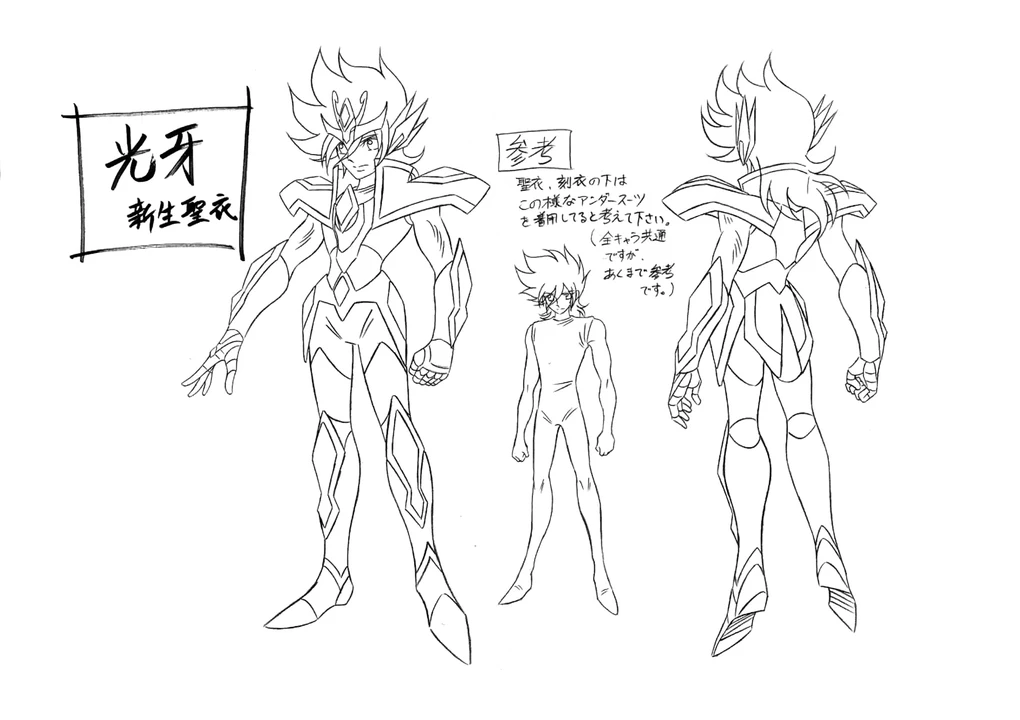 光牙
新生聖衣
参考
聖衣、刻衣の下は
この様なアンダースーツ
を着用してると考えて下さい。
(全キャラ共通
ですが、
あくまで参考
です。)